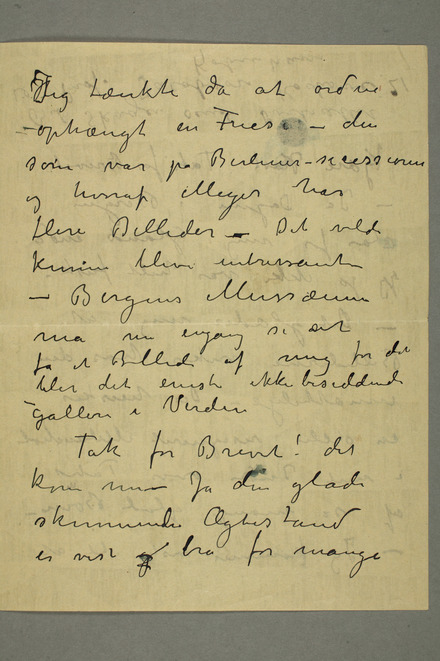 Jeg tænkte da at ordne
– ophængt en Frise – den
som var på Berliner-secessionen
og hvoraf Meyer har
flere Billeder – Det vilde
kunne blive interessant
– Bergens Musæum
må nu engang se at
få et Billede af mig for det
blir det eneste ikke besiddende
Galleri i Verden
Tak for Brevet! det
kom nu – Ja den glade
skinnende Ægtestand
er vist bra for mange